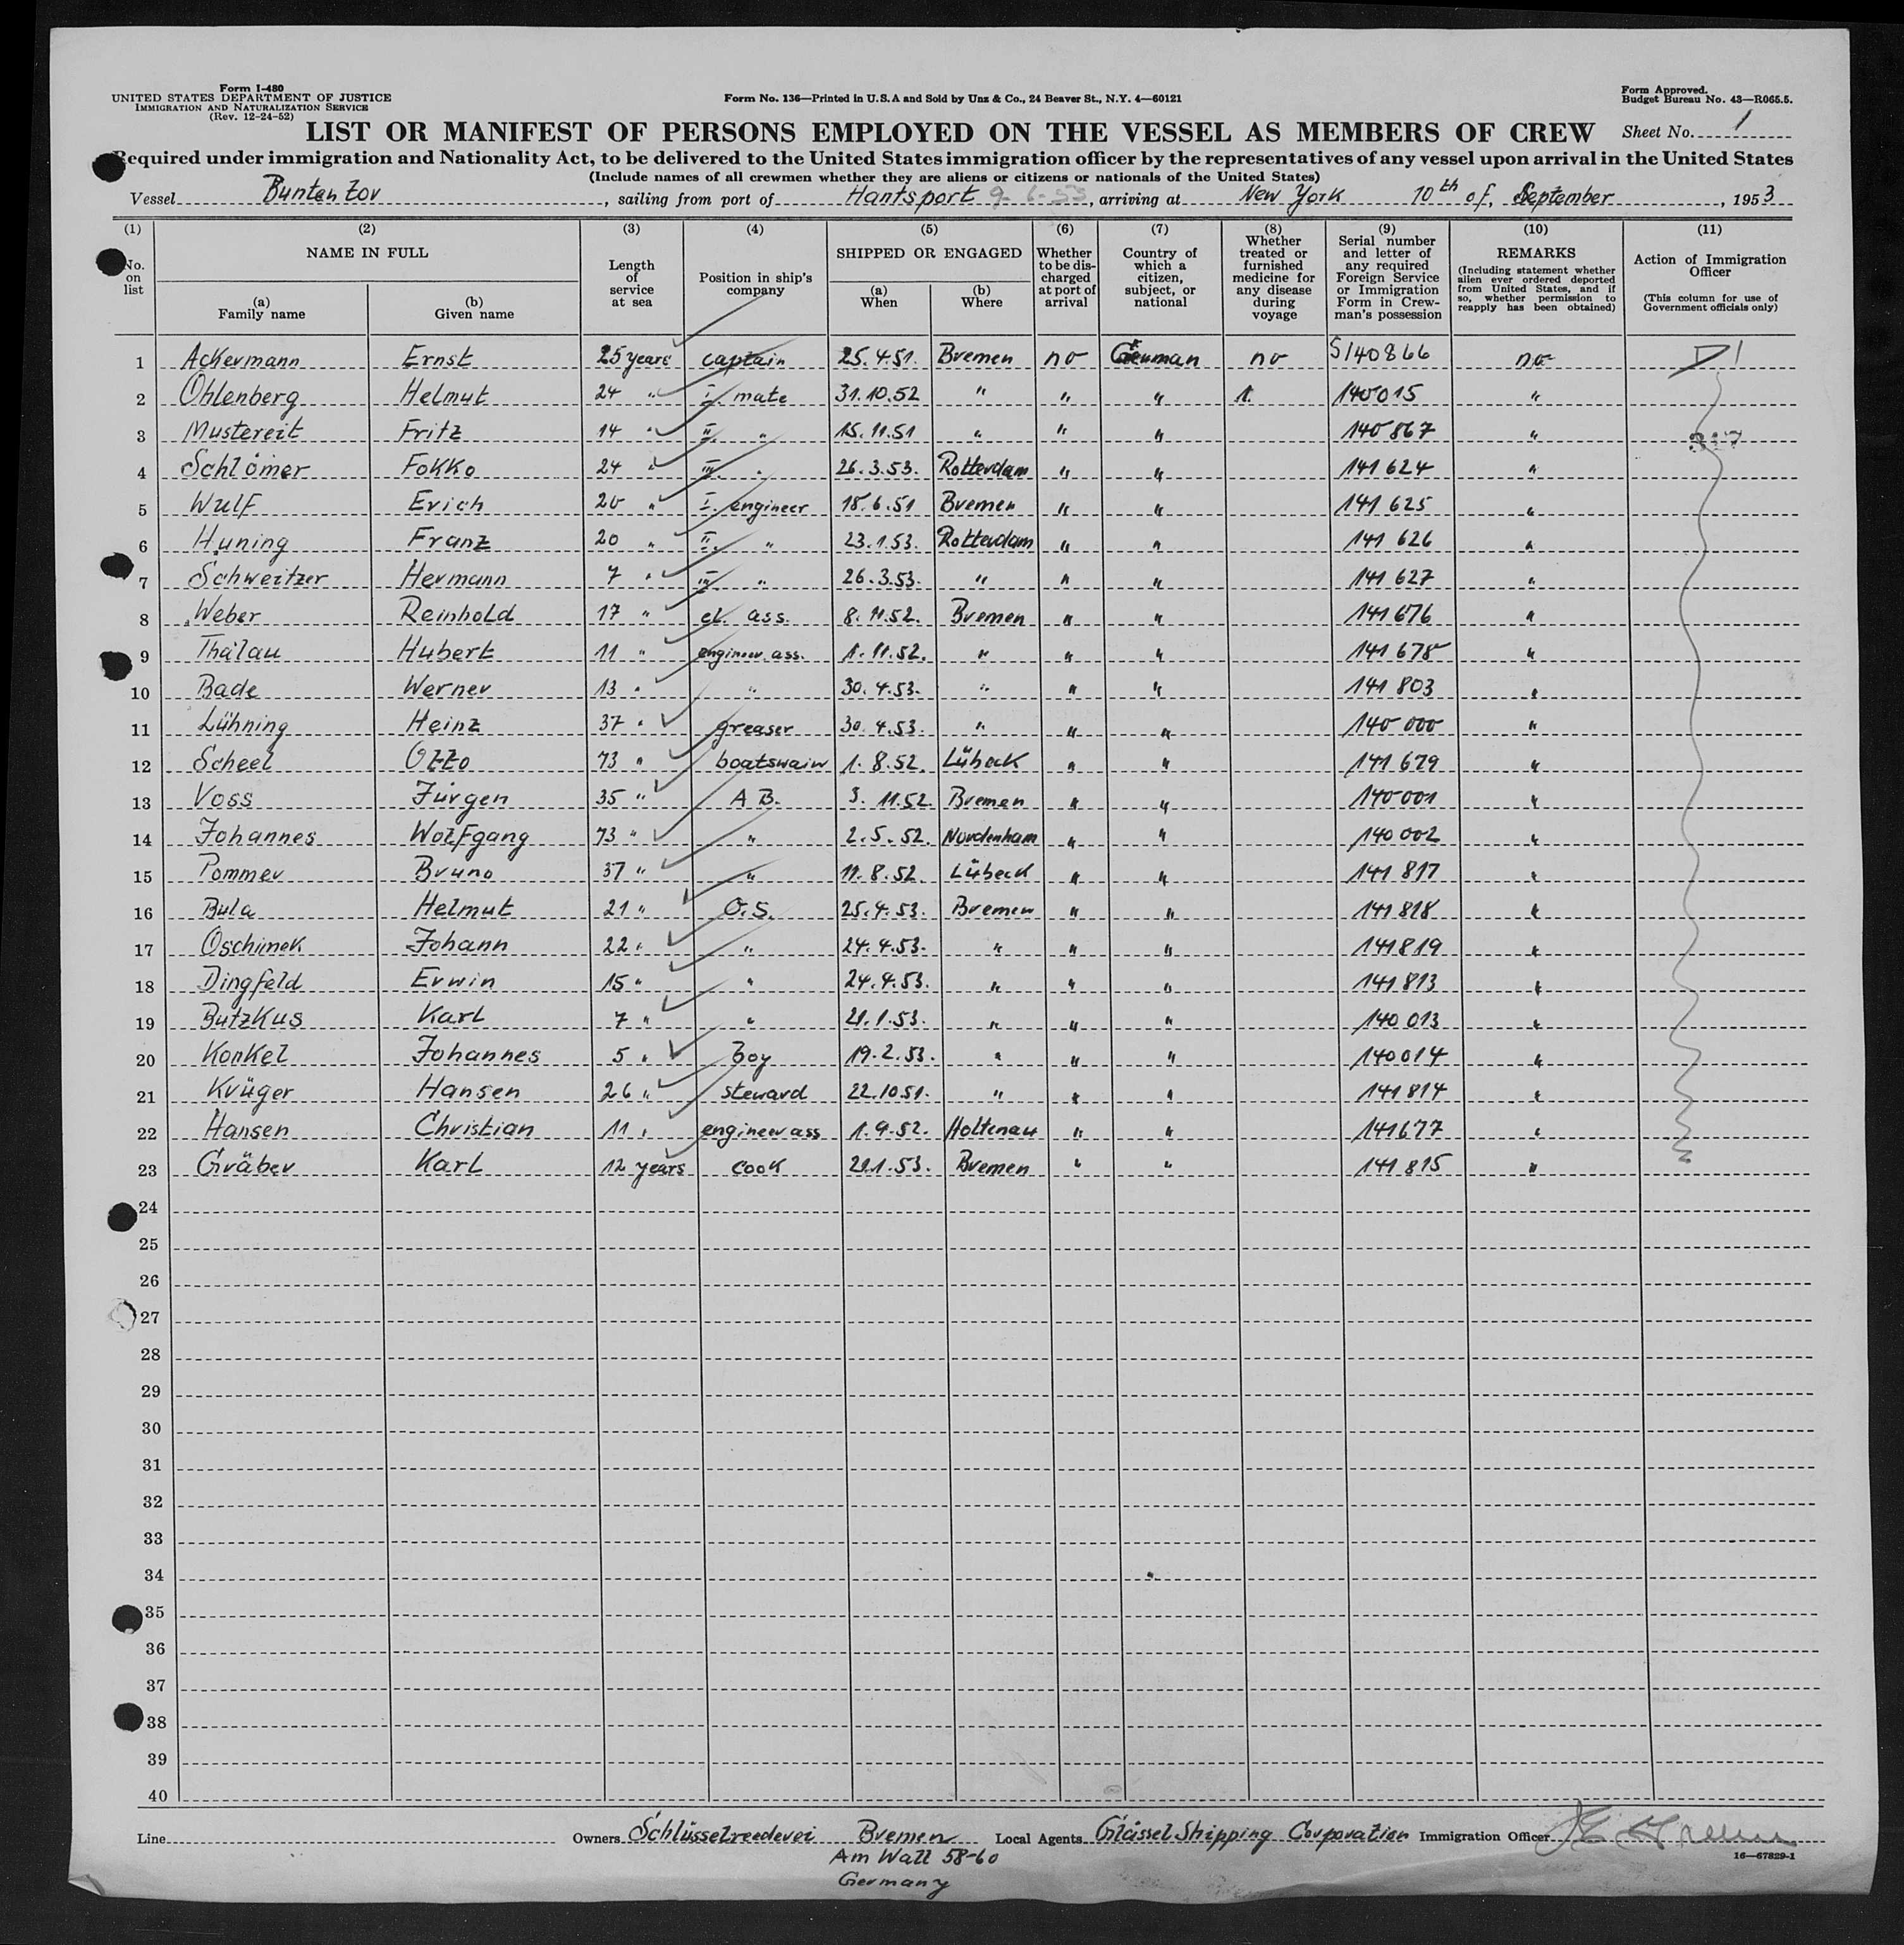 Form I-480
UNITED STATES DEPARTMENT OF JUSTICE
IMMIGRATION AND NATURALIZATION SERVICE
(Rev. 12-24-52)
Form No. 136—Printed in U.S.A and Sold by Unz & Co., 24 Beaver St., N.Y. 4—60121
Form Approved.
Budget Bureau No. 43—R065.5.
LIST OR MANIFEST OF PERSONS EMPLOYED ON THE VESSEL AS MEMBERS OF CREW
Sheet No. 1
Required under immigration and Nationality Act, to be delivered to the United States immigration officer by the representatives of any vessel upon arrival in the United States
(Include names of all crewmen whether they are aliens or citizens or nationals of the United States)
Vessel Buntentor, sailing from port of Hantsport 9-6-53, arriving at New York 10th of, September, 1953
(1) (2) (3) (4) (5) (6) (7) (8) (9) (10) (11)
No. on list
NAME IN FULL
(a) Family name
(b) Given name
Length of service at sea
Position in ship's company
SHIPPED OR ENGAGED
(a) When
(b) Where
Whether to be discharged at port of arrival
Country of which a citizen, subject, or national
Whether treated or furnished medicine for any disease during voyage
Serial number and letter of any required Foreign Service or Immigration Form in Crewman's possession
REMARKS
(Including statement whether alien ever ordered deported from United States, and if so, whether permission to reapply has been obtained)
Action of Immigration Officer
(This column for use of Government officials only)
1 Ackermann Ernst 25 years captain 25.4.51. Bremen no German no 5140866 no D1
2 Ohlenberg Helmut 24 " I. mate 31.10.52 " " " 1. 140015 "
3 Mustereit Fritz 14 " II. " 15.11.51 " " " 140867 "
4 Schlömer Fokko 24 " III. " 26.3.53. Rotterdam " " 141624 "
5 Wulf Erich 20 " I. engineer 18.6.51 Bremen " " 141625 "
6 Huning Franz 20 " II. " 23.1.53. Rotterdam " " 141626 "
7 Schweitzer Hermann 7 " III " 26.3.53. " " " 141627 "
8 Weber Reinhold 17 " el. ass. 8.11.52. Bremen " " 141676 "
9 Thälau Hubert 11 " engineer. ass. 1.11.52. " " " 141678 "
10 Bade Werner 13 " " 30.4.53. " " " 141803 "
11 Lühning Heinz 37 " greaser 30.4.53. " " " 140000 "
12 Scheel Otto 73 " boatswain 1.8.52. Lübeck " " 141679 "
13 Voss Jürgen 35 " A B. 3.11.52. Bremen " " 140001 "
14 Johannes Wolfgang 73 " " 2.5.52. Nordenham " " 140002 "
15 Pommer Bruno 37 " " 11.8.52. Lübeck " " 141817 "
16 Bula Helmut 21 " O.S. 25.4.53. Bremen " " 141818 "
17 Oschinek Johann 22 " " 24.4.53. " " " 141819 "
18 Dingfeld Erwin 15 " " 24.4.53. " " " 141813 "
19 Butzkus Karl 7 " " 21.1.53. " " " 140013 "
20 Konkel Johannes 5 " boy 19.2.53. " " " 140014 "
21 Krüger Hansen 26 " steward 22.10.51. " " " 141814 "
22 Hansen Christian 11 " engineer ass 1.9.52. Holtenau " " 141677 "
23 Gräber Karl 12 years cook 21.1.53. Bremen " " 141815 "
24
25
26
27
28
29
30
31
32
33
34
35
36
37
38
39
40
Line Owners Schlüsselreederei Bremen Local Agents Glässel Shipping Corporation Immigration Officer
Am Wall 58-60
Germany
16—67829-1